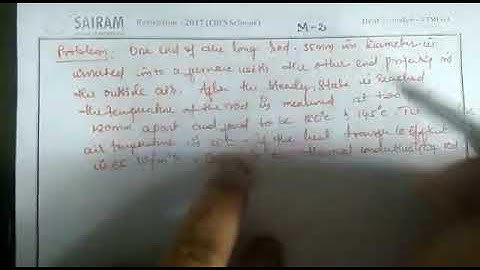 SAIRAM
Regulation - 2017 (CBCS Scheme)
M-2
Problem: One end of the long rod 35mm in diameter is
inserted into a furnace with the other end projecting in
the outside air. After the steady state is reached
the temperature of the rod is measured at two
120mm apart and found to be 180°C & 145°C. The
air temperature is 25°C. If the heat transfer coefficient
is 65 thermal conductivity of rod